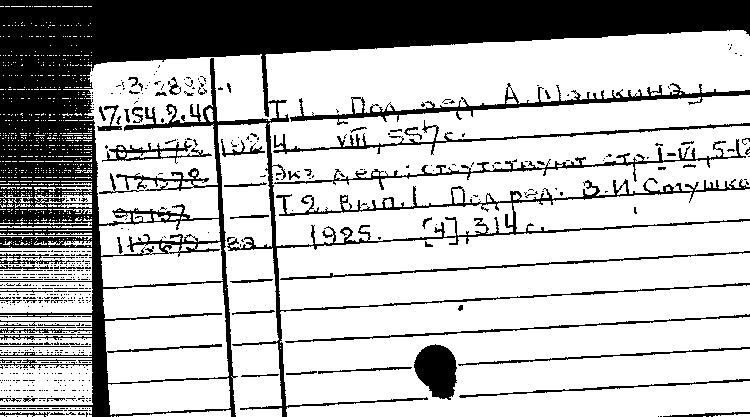 17.154.2.40 Т.1. [Под ред. А. Машкина].
1924. VIII, 557 с.
172678 Экз. дефр: отсутствуют стр. I-VI, 5-12
Т.2. Вып. 1. Под ред. В.И. Сотушко
112679 1925. [4], 314 с.